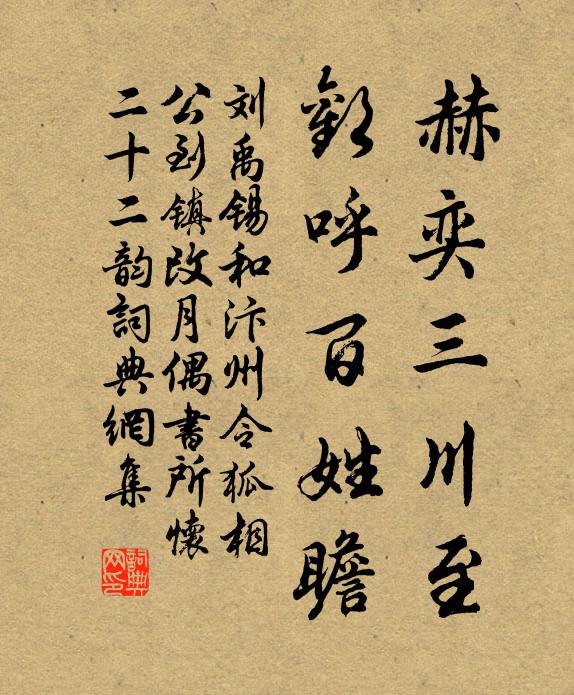 赫奕三川至
歡呼百姓瞻
刘禹锡和汴州令狐相
公到镇改月偶書所懷
二十二韵詞典網集
詞典网印